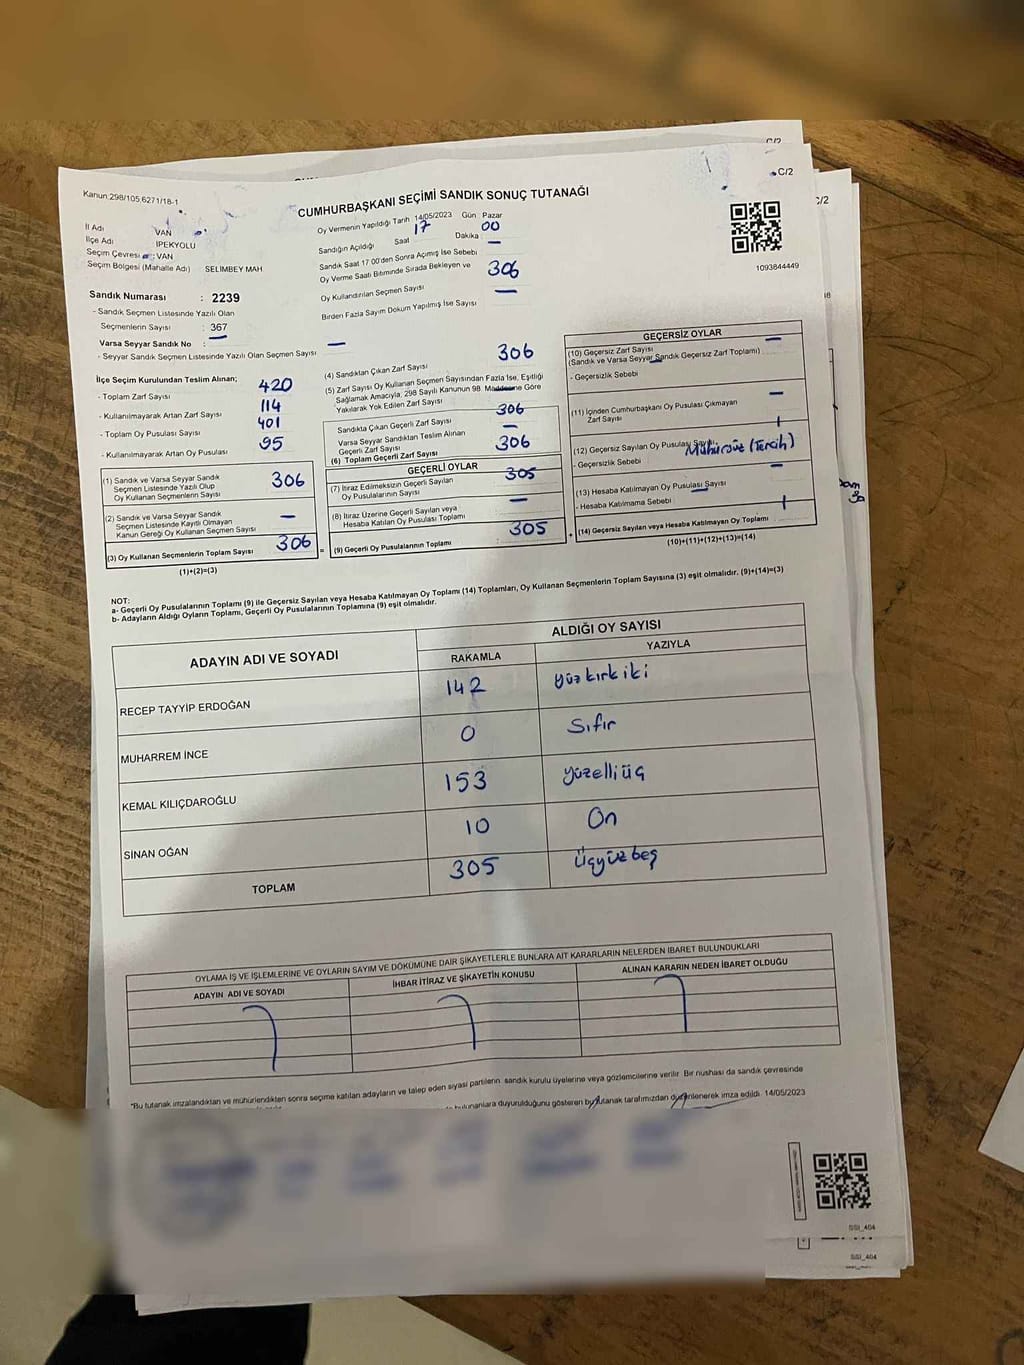 C/2
C/2
C/2
Kanun:298/105,6271/18-1
CUMHURBAŞKANI SEÇİMİ SANDIK SONUÇ TUTANAĞI
İl Adı VAN
İlçe Adı İPEKYOLU
Seçim Çevresi : VAN
Seçim Bölgesi (Mahalle Adı) SELİMBEY MAH
Sandık Numarası : 2239
- Sandık Seçmen Listesinde Yazılı Olan
Seçmenlerin Sayısı : 367
Varsa Seyyar Sandık No : —
- Seyyar Sandık Seçmen Listesinde Yazılı Olan Seçmen Sayısı —
Oy Vermenin Yapıldığı Tarih 14/05/2023 Gün Pazar
Sandığın Açıldığı Saat 17 Dakika 00
Sandık Saat 17:00'den Sonra Açımış İse Sebebi —
Oy Verme Saati Bitiminde Sırada Bekleyen ve
Oy Kullandırılan Seçmen Sayısı 306
Birden Fazla Sayım Döküm Yapılmış İse Sayısı —
1093844449
İlçe Seçim Kurulundan Teslim Alınan;
- Toplam Zarf Sayısı 420
- Kullanılmayarak Artan Zarf Sayısı 114
- Toplam Oy Pusulası Sayısı 401
- Kullanılmayarak Artan Oy Pusulası 95
(1) Sandık ve Varsa Seyyar Sandık
Seçmen Listesinde Yazılı Olup
Oy Kullanan Seçmenlerin Sayısı 306
(2) Sandık ve Varsa Seyyar Sandık
Seçmen Listesinde Kayıtlı Olmayan
Kanun Gereği Oy Kullanan Seçmen Sayısı —
(3) Oy Kullanan Seçmenlerin Toplam Sayısı 306
(1)+(2)=(3)
(4) Sandıktan Çıkan Zarf Sayısı 306
(5) Zarf Sayısı Oy Kullanan Seçmen Sayısından Fazla İse, Eşitliği
Sağlamak Amacıyla, 298 Sayılı Kanunun 98. Maddesine Göre
Yakılarak Yok Edilen Zarf Sayısı —
Sandıkta Çıkan Geçerli Zarf Sayısı 306
Varsa Seyyar Sandıktan Teslim Alınan
Geçerli Zarf Sayısı —
(6) Toplam Geçerli Zarf Sayısı 306
GEÇERLİ OYLAR
(7) İtiraz Edilmeksizin Geçerli Sayılan
Oy Pusulalarının Sayısı 305
(8) İtiraz Üzerine Geçerli Sayılan veya
Hesaba Katılan Oy Pusulası Toplamı —
= (9) Geçerli Oy Pusulalarının Toplamı 305
GEÇERSİZ OYLAR
(10) Geçersiz Zarf Sayısı —
(Sandık ve Varsa Seyyar Sandık Geçersiz Zarf Toplamı)
- Geçersizlik Sebebi —
(11) İçinden Cumhurbaşkanı Oy Pusulası Çıkmayan
Zarf Sayısı —
(12) Geçersiz Sayılan Oy Pusulası Sayısı 1
- Geçersizlik Sebebi Mühürsüz (Tercih)
(13) Hesaba Katılmayan Oy Pusulası Sayısı —
- Hesaba Katılmama Sebebi —
+ (14) Geçersiz Sayılan veya Hesaba Katılmayan Oy Toplamı 1
(10)+(11)+(12)+(13)=(14)
NOT:
a- Geçerli Oy Pusulalarının Toplamı (9) ile Geçersiz Sayılan veya Hesaba Katılmayan Oy Toplamı (14) Toplamları, Oy Kullanan Seçmenlerin Toplam Sayısına (3) eşit olmalıdır. (9)+(14)=(3)
b- Adayların Aldığı Oyların Toplamı, Geçerli Oy Pusulalarının Toplamına (9) eşit olmalıdır.
ADAYIN ADI VE SOYADI ALDIĞI OY SAYISI
RAKAMLA YAZIYLA
RECEP TAYYİP ERDOĞAN 142 yüzkırkiki
MUHARREM İNCE 0 Sıfır
KEMAL KILIÇDAROĞLU 153 yüzelliüç
SİNAN OĞAN 10 On
TOPLAM 305 Üçyüzbeş
OYLAMA İŞ VE İŞLEMLERİNE VE OYLARIN SAYIM VE DÖKÜMÜNE DAİR ŞİKAYETLERLE BUNLARA AİT KARARLARIN NELERDEN İBARET BULUNDUKLARI
ADAYIN ADI VE SOYADI İHBAR İTİRAZ VE ŞİKAYETİN KONUSU ALINAN KARARIN NEDEN İBARET OLDUĞU
*Bu tutanak imzalandıktan ve mühürlendikten sonra seçime katılan adayların ve talep eden siyasi partilerin sandık kurulu üyelerine veya gözlemcilerine verilir. Bir nüshası da sandık çevresinde
bulunanlara duyurulduğunu gösteren bu tutanak tarafımızdan düzenlenerek imza edildi. 14/05/2023
SSI_404
SSI_404